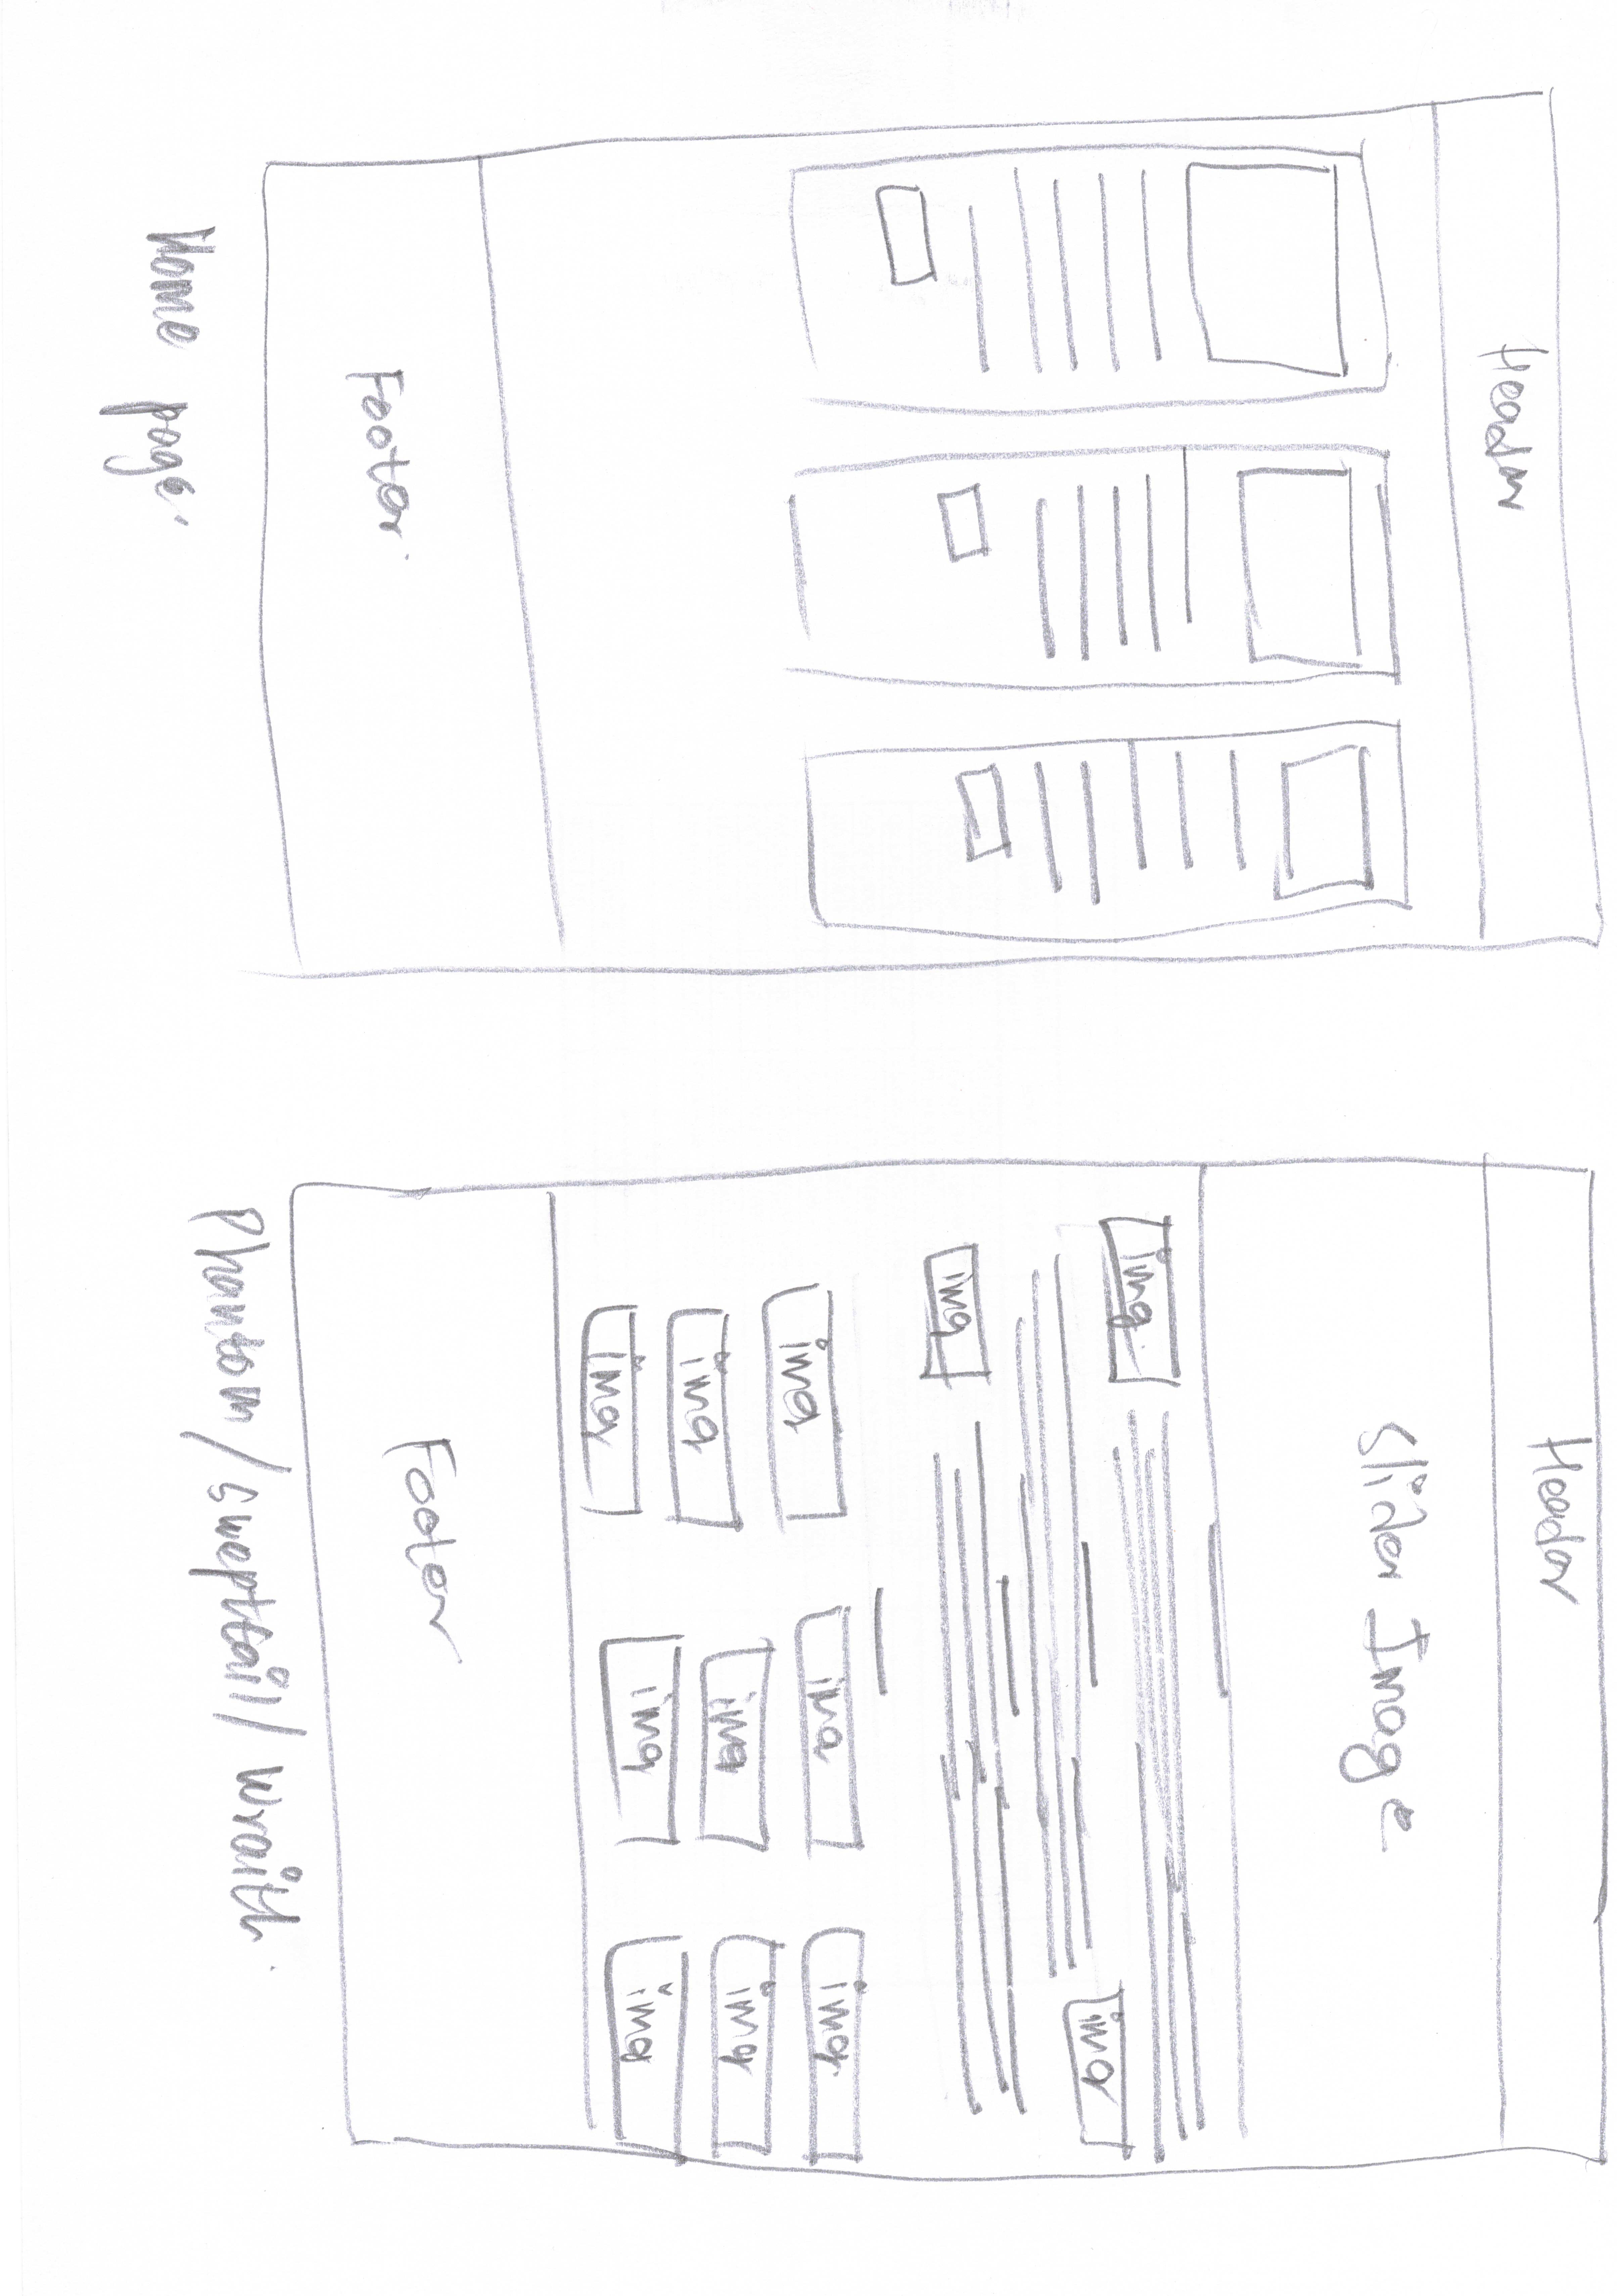 Header
Footer.
Home page.
Header
Slider Image
img.
img
img
img
img
img.
img
img
img
img
img
img
Footer
Phantom/sweptfail/Wraith.